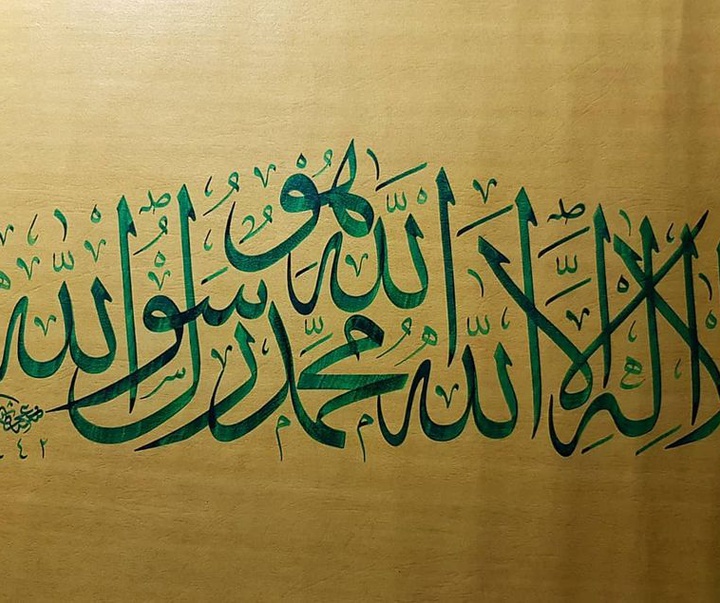 لا إله إلا الله الله هو محمد رسول الله
٤٢